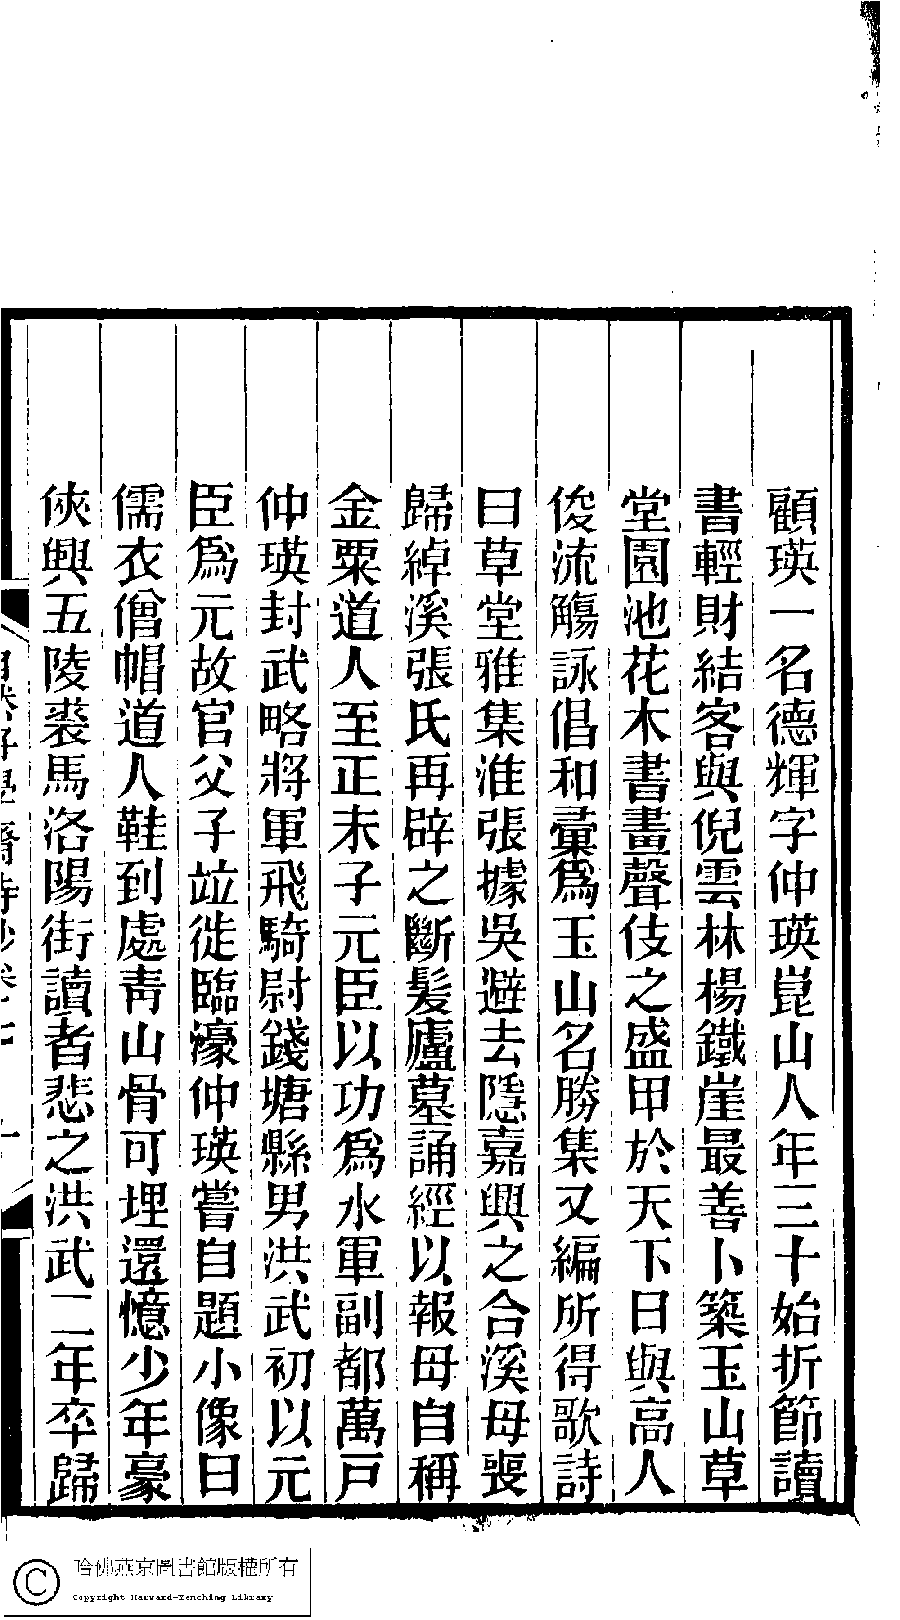 顧瑛一名德輝字仲瑛崑山人年三十始折節讀
書輕財結客與倪雲林楊鐵崖最善卜築玉山草
堂園池花木書畫聲伎之盛甲於天下日與高人
俊流觴詠倡和彚爲玉山名勝集又編所得歌詩
曰草堂雅集淮張據吳避去隱嘉興之合溪母喪
歸綽溪張氏再辟之斷髮廬墓誦經以報母自稱
金粟道人至正末子元臣以功爲水軍副都萬戸
仲瑛封武略將軍飛騎尉錢塘縣男洪武初以元
臣爲元故官父子竝徙臨濠仲瑛嘗自題小像曰
儒衣僧帽道人鞋到處靑山骨可埋還憶少年豪
俠興五陵裘馬洛陽街讀者悲之洪武二年卒歸
哈佛燕京圖書館版權所有
Copyright Harvard-Yenching Library